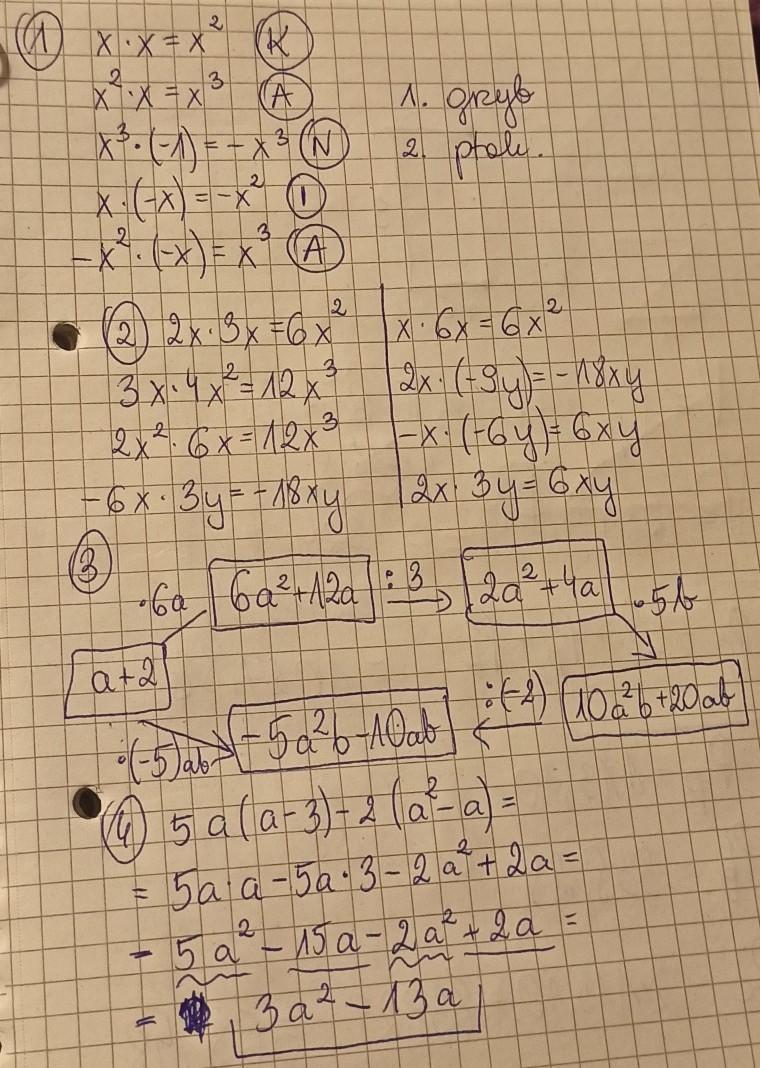 1 x · x = x² K
x² · x = x³ A
x³ · (-1) = - x³ N
x · (-x) = -x² I
-x² · (-x) = x³ A
1. grzyb
2. ptak.
2 2x · 3x = 6x²
3x · 4x² = 12x³
2x² · 6x = 12x³
-6x · 3y = -18xy
x · 6x = 6x²
2x · (-9y) = -18xy
-x · (-6y) = 6xy
2x · 3y = 6xy
3
·6a 6a²+12a :3 2a²+4a ·5b
a+2
:(-2) 10a²b+20ab
·(-5)ab -5a²b-10ab
4 5a(a-3)-2(a²-a)=
= 5a·a-5a·3-2a²+2a=
= 5a²-15a-2a²+2a=
= 3a²-13a